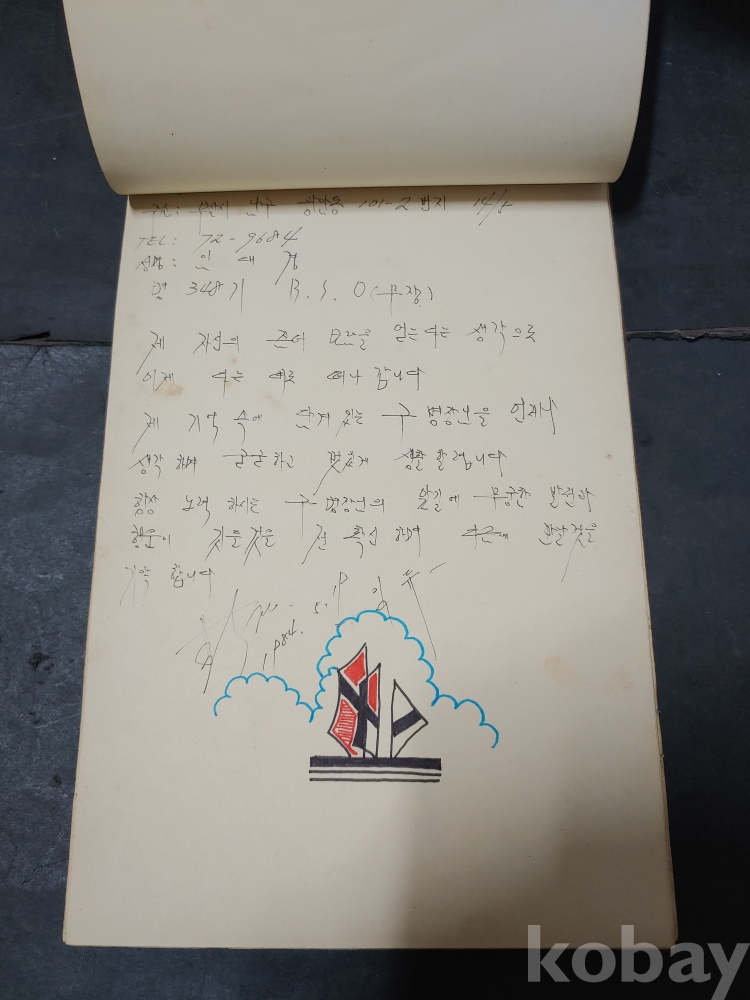 주소: 부산시 남구 광안동 101-2 번지 14/5
TEL: 72-9684
성명: 인 대 경
병 348기 B.S.O (무장)
제 자신의 존여 보람을 얻는다는 생각으로
이제 나는 떠나 갑니다
제 기억 속에 남겨 있는 구 병장님을 언제나
생각 하며 굳굳하고 멋있게 생활 할렵니다
항상 노력 하시는 구 병장님의 앞길에 무궁한 발전과
행운이 깃들것을 전 확신 하며 만날것을
기약 합니다
1984.
kobay